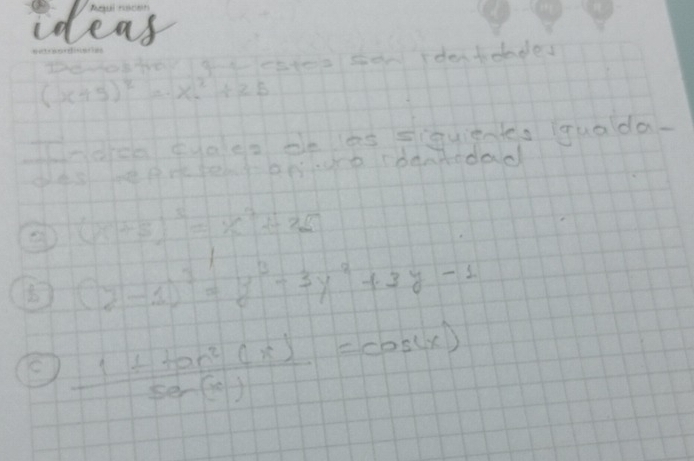 Aquí nacen
ideas
extraordinarias
Demostrar que estas son identidades
(x+5)² = x² + 25
Indica cuales de las siguientes igualda-
des representan una identidad
a (x+5)² = x² + 25
b (y-1)³ = y³ - 3y² + 3y - 1
c 1 + tan²(x) = cos(x)
sen(x)